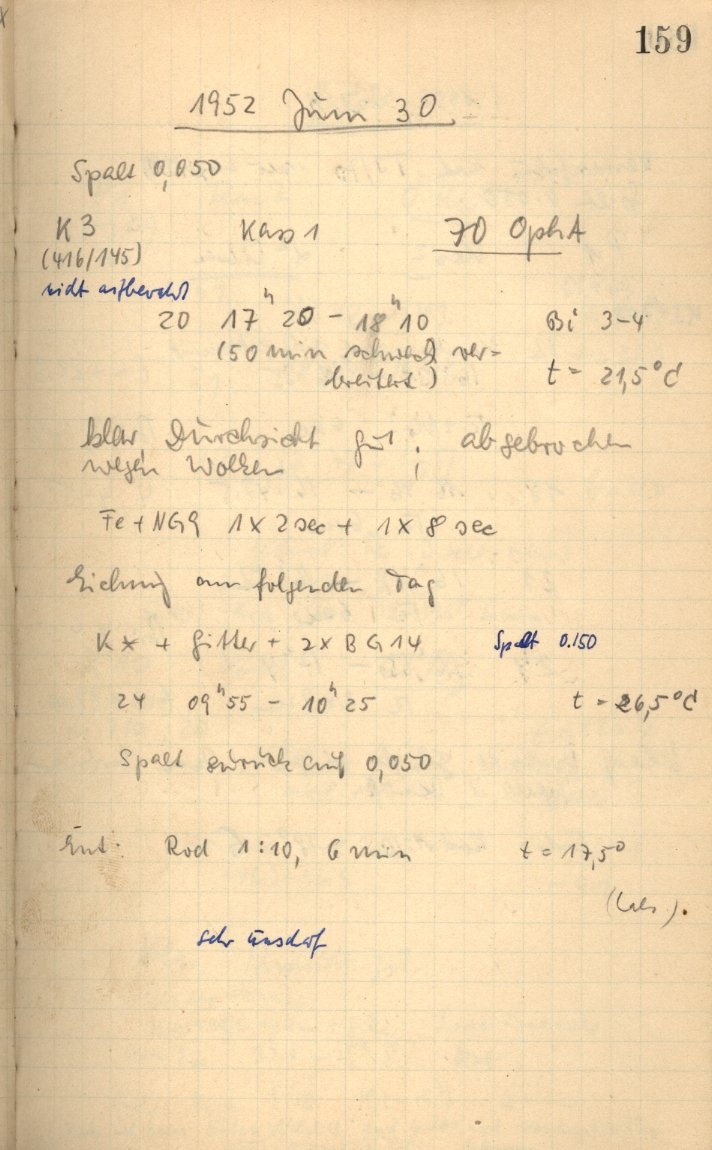 159
1952 Juni 30
Spalt 0,050
K 3 Kass 1 70 Oph A
(416/145)
nicht aufbewahrt
20 17ʰ 20 - 18ʰ 10 Bi 3-4
(50 min schwach ver-
breitert) t = 21,5°C
klar Durchsicht gut; abgebrochen
wegen Wolken
Fe + NG9 1 x 2 sec + 1 x 8 sec
Eichung am folgenden Tag
K* + Gitter + 2x BG14 Spalt 0.150
24 09ʰ 55 - 10ʰ 25 t = 26,5°C
Spalt zurück auf 0,050
Ent: Rod 1:10, 6 min t = 17,5°
sehr unscharf